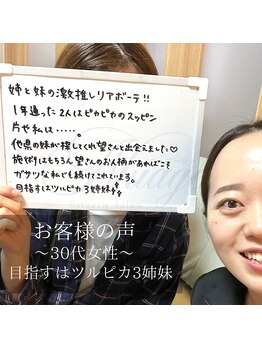 姉と妹の激推しリアボーテ!!
1年通った2人はピカピカのスッピン
片や私は・・・・・。
他県の妹が探してくれ望さんと出会えました♡
施術はもちろん望さんのお人柄があればこそ
ガサツな私でも続けてこれています。
目指すはツルピカ3姉妹
お客様の声
～30代女性～
目指すはツルピカ3姉妹